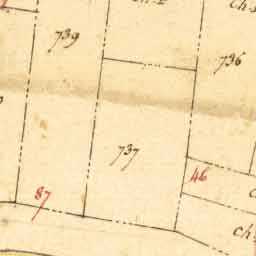 739
736
737
46
87
ch.